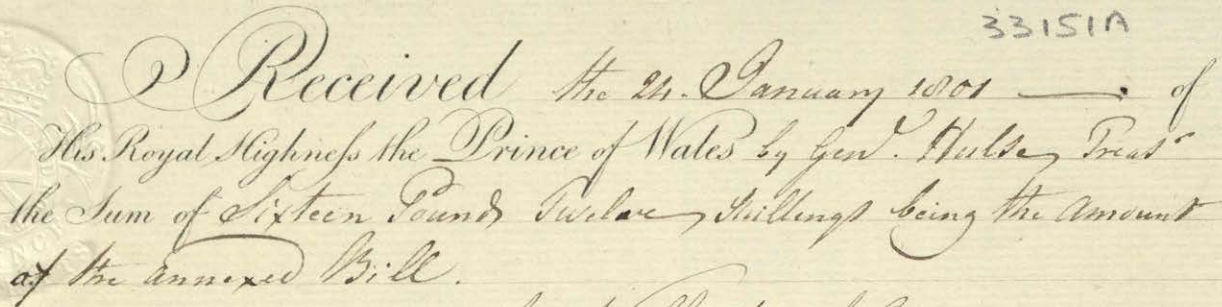 33151A
Received the 24. January 1801 —— . of
His Royal Highness the Prince of Wales by Genl. Hulse Treasr
the Sum of Sixteen Pounds Twelve Shillings being the Amount
of the annexed Bill.